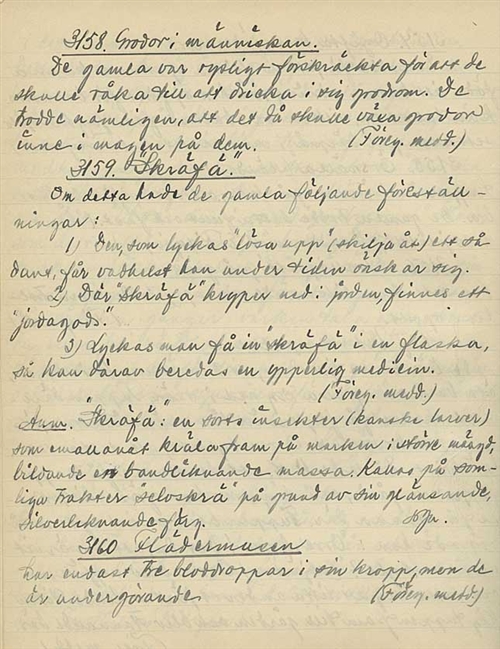 3158. Grodor i människan.
De gamla var rysligt förskräckta för att de
skulle råka till att dricka i sig grodrom. De
trodde nämligen, att det då skulle växa grodor
inne i magen på dem. (Föreg. medd.)
3159. "Skräfä."
Om detta hade de gamla följande föreställ-
ningar:
1) Den, som lyckas "lösa upp" (skilja åt) ett så
dant, får vadhelst han under tiden önskar sig.
2) Där "skräfä" kryper ned i jorden, finnes ett
"jordagods."
3) Lyckas man få in "skräfä" i en flaska,
så kan därav beredas en ypperlig medicin.
(Föreg. medd.)
Anm. "Skräfä": en sorts insekter (kanske larver)
som emellanåt kräla fram på marken i större mängd,
bildande en bandliknande massa. Kallas på som-
liga trakter "seloskrä" på grund av sin glänsande,
silverliknande färg.
3160 Flädermusen
har endast tre bloddroppar i sin kropp, men de
är undergörande. (Föreg. medd.)